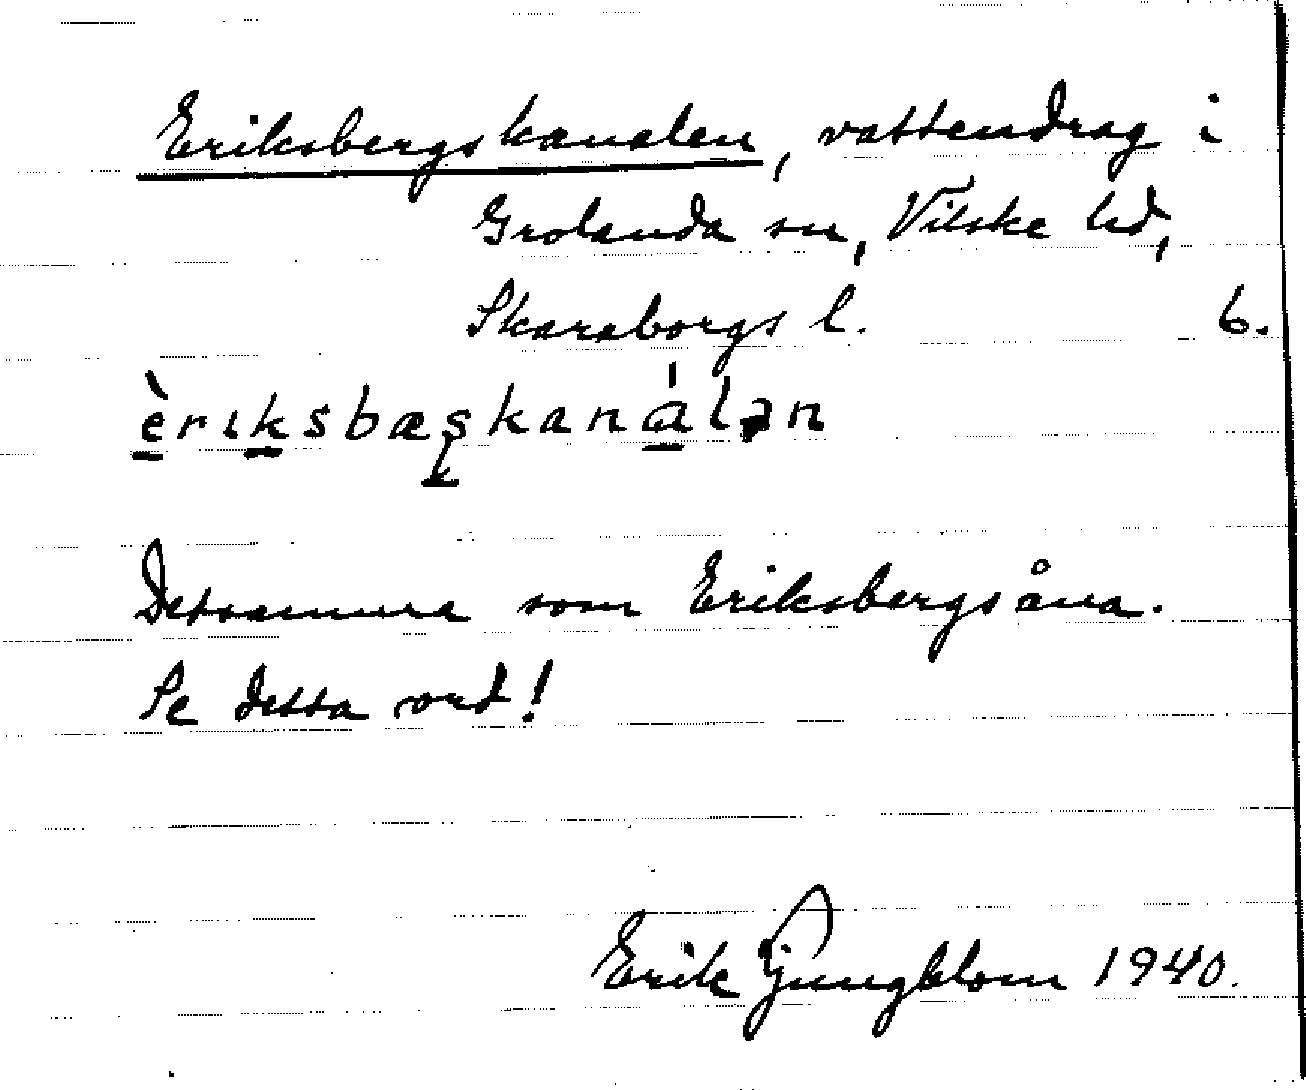 Eriksbergskanalen, vattendrag i
Grolanda sn, Vilske hd,
Skaraborgs l. 6.
èrıksbæʂkanálən
Detsamma som Eriksbergsåna.
Se detta ord!
Erik Ljungblom 1940.